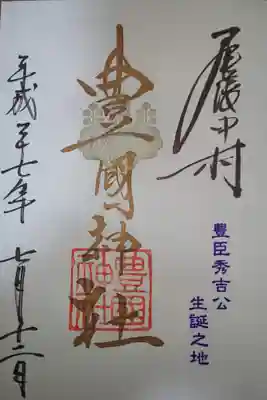 尾張中村
豊臣秀吉公
生誕之地
豊國神社
豊國神社
平成二十七年七月十二日